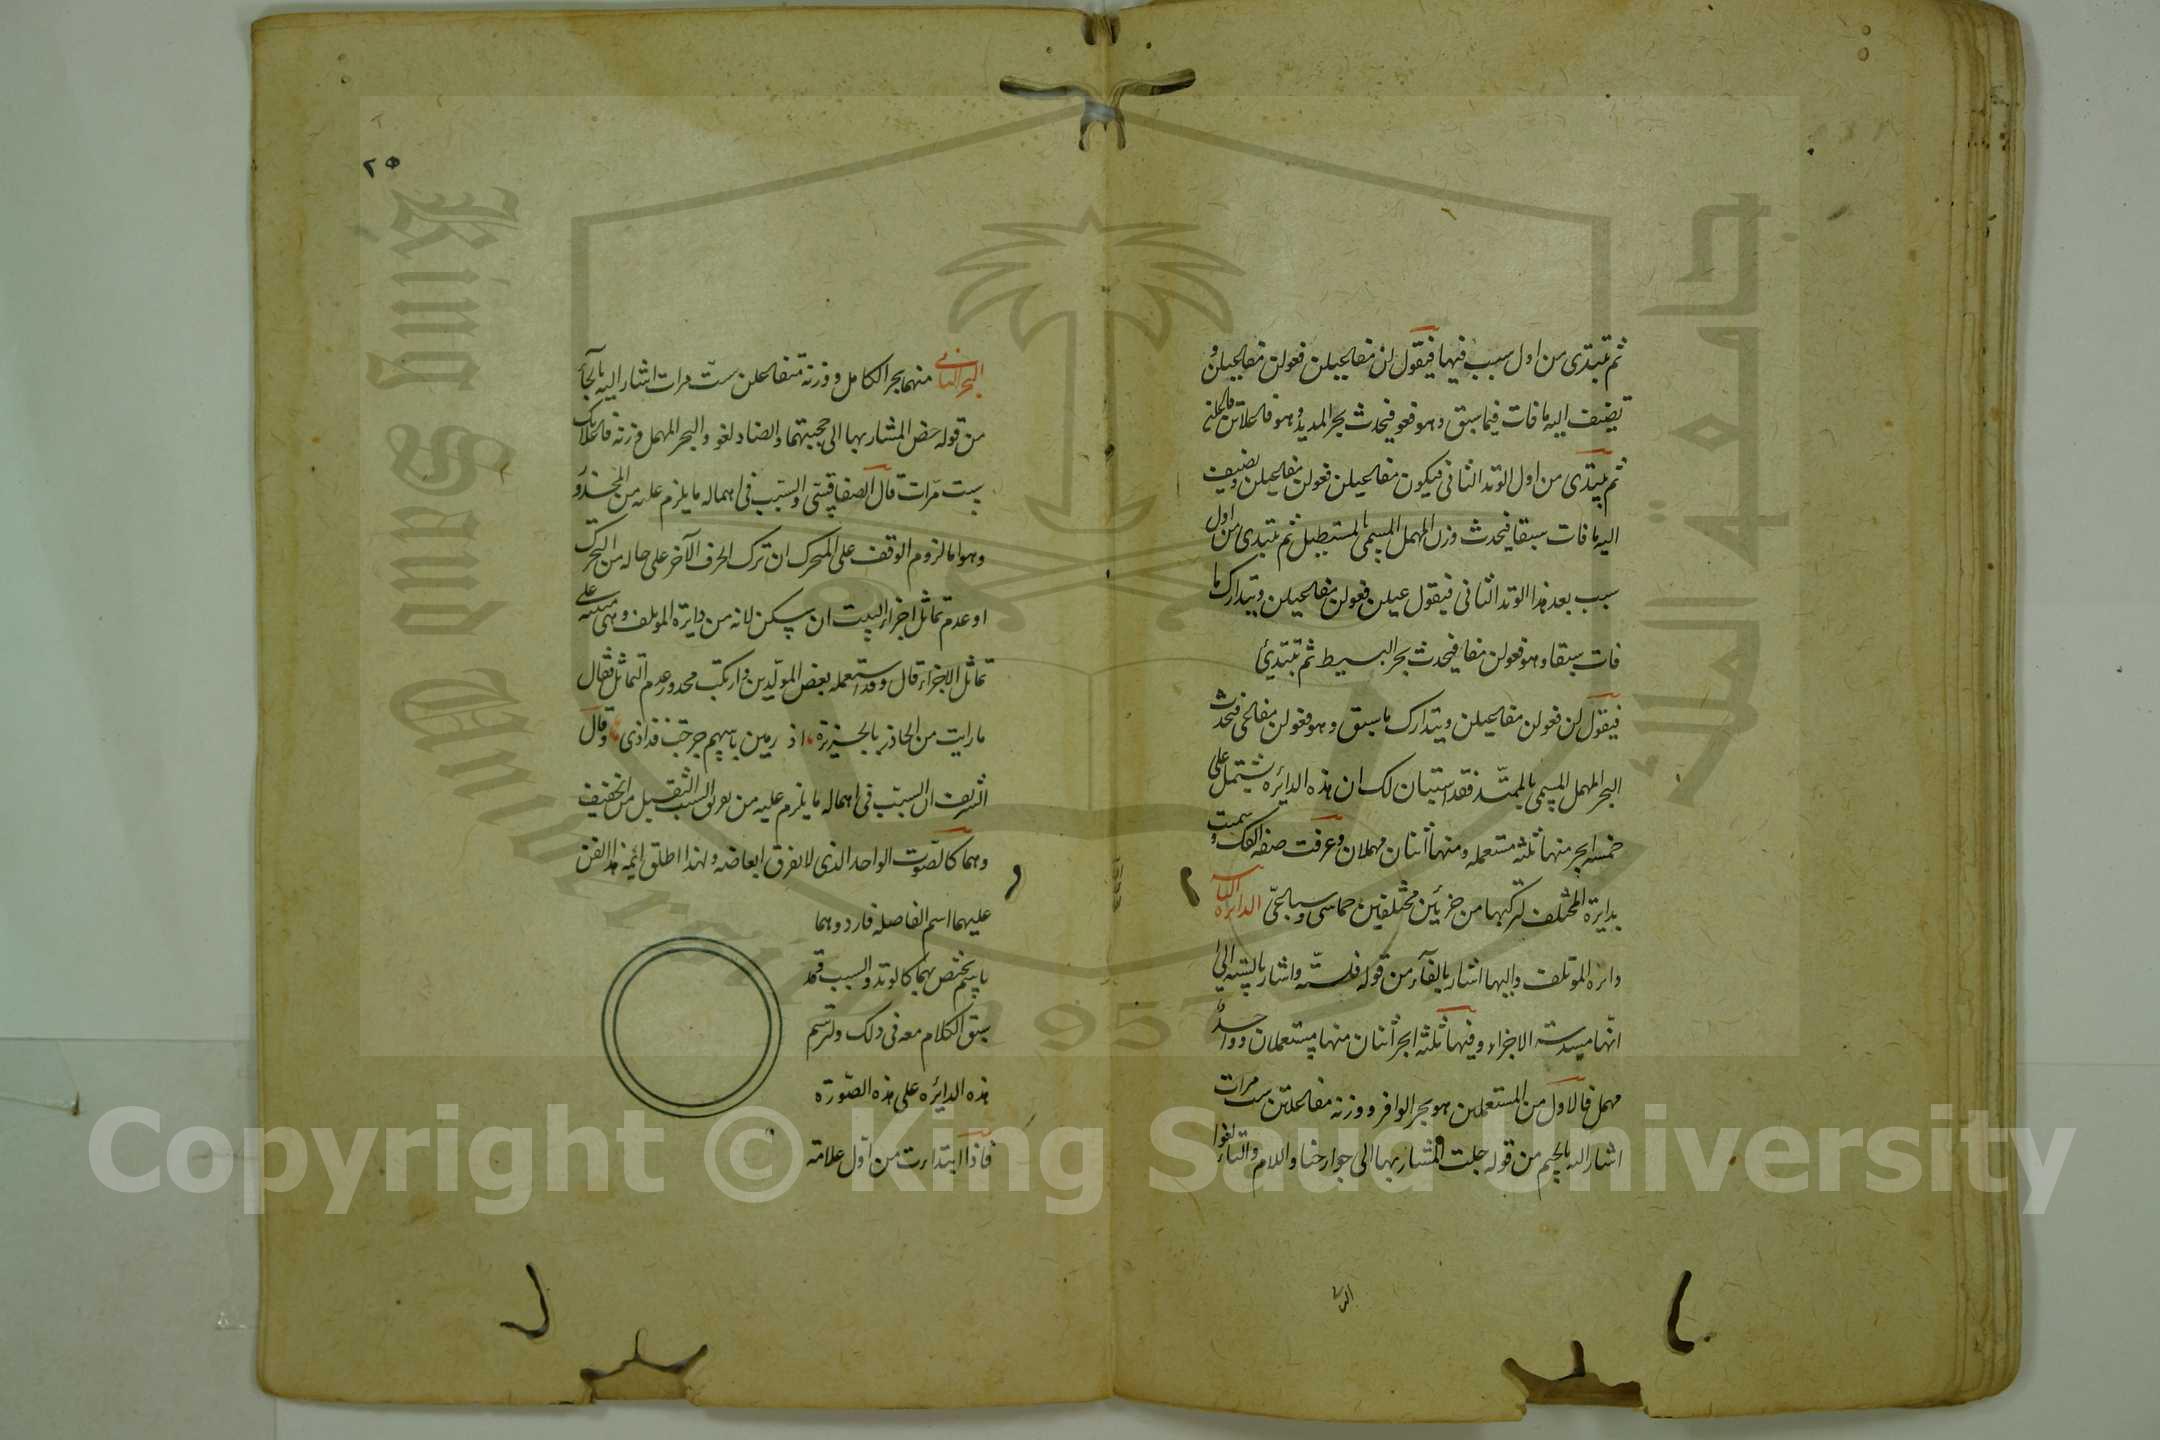 ثم تبتدى من اول سبب فيها فيقول لن مفاعيلن فعولن مفاعيلن و
تضيف اليه ما فات فيما سبق وهو فعو فيحدث بحر المديد وهو فاعلاتن فاعلن
ثم يبتدى من اول الوتد الثانى فيكون مفاعيلن فعولن مفاعيلن وتضيف
اليه ما فات سبقا فيحدث وزن المهمل المسمى بالمستطيل ثم تبتدى من اول
سبب بعد هذا الوتد الثانى فيقول عيلن فعولن مفاعيلن ويتدارك ما
فات سبقا وهو فعولن مفا فيحدث بحر البسيط ثم تبتدئ
فيقول لن فعولن مفاعيلن ويتدارك ما سبق وهو فعولن مفاعى فيحدث
البحر المهمل المسمى بالممتد فقد استبان لك ان هذه الدائره يشتمل على
خمسة ابحر منها ثلثه مستعمله ومنها اثنان مهملان وعرفت صفه الفك وسميت
بدايرة المختلف لتركبها من جزئين مختلفين خماسى وسباعىّ الدايرة الثانية
دائره الموتلف واليها اشار بالفآء من قوله فلستّه واشار بالستة الى
انّها مسدسة الاجزاء وفيها ثلثه ابحر اثنان منها مستعملان وواحدٌ
مهمل فالاول من المستعملين هو بحر الوافر ووزنه مفاعلتن ست مرات
اشار اليه بالجيم من قوله جلت المشار بهما الى جوار حنا واللام والتاء لغوا
البحر
٢٥
البحر الثانى منهما بحر الكامل ووزنه متفاعلن ستّ مرات اشار اليه بالحآء
من قوله حض المشار بها الى حجبتهما والضاد لغو والبحر المهمل وزنه فاعلاتك
ست مرّات قال الصفاقيتى والسبب فى اهماله ما يلزم عليه من المحذور
وهو اما لزوم الوقف على المتحرك ان ترك الحرف الآخر على حاله من التحرك
او عدم تماثل اجزاء البيت ان سكن لانه من دايرة الموتلف وهى مبنيه على
تماثل الاجزاء قال وقد استعمله بعض المولّدين وارتكب محدور عدم التماثل فقال
ما رايت من الجاذر بالجزيرة اذ رمين باسهم جرحت فداذى وقال
الشريف ان السبب فى اهماله ما يلزم عليه من تعريق السبب الثقيل من الخفيف
وهما كالصّوت الواحد الذى لا يفرق ابعاضه ولهذا اطلق ائمة هذا الفن
عليهما اسم الفاصله فاردوهما
باسم يختص بهما كالوتد والسبب فقد
سبق الكلام معه فى ذلك ولترسم
هذه الدايره على هذه الصّورة
فاذا ابتداءت من اول علامه
Copyright © King Saud University
King Saud University
جامعة الملك
1957